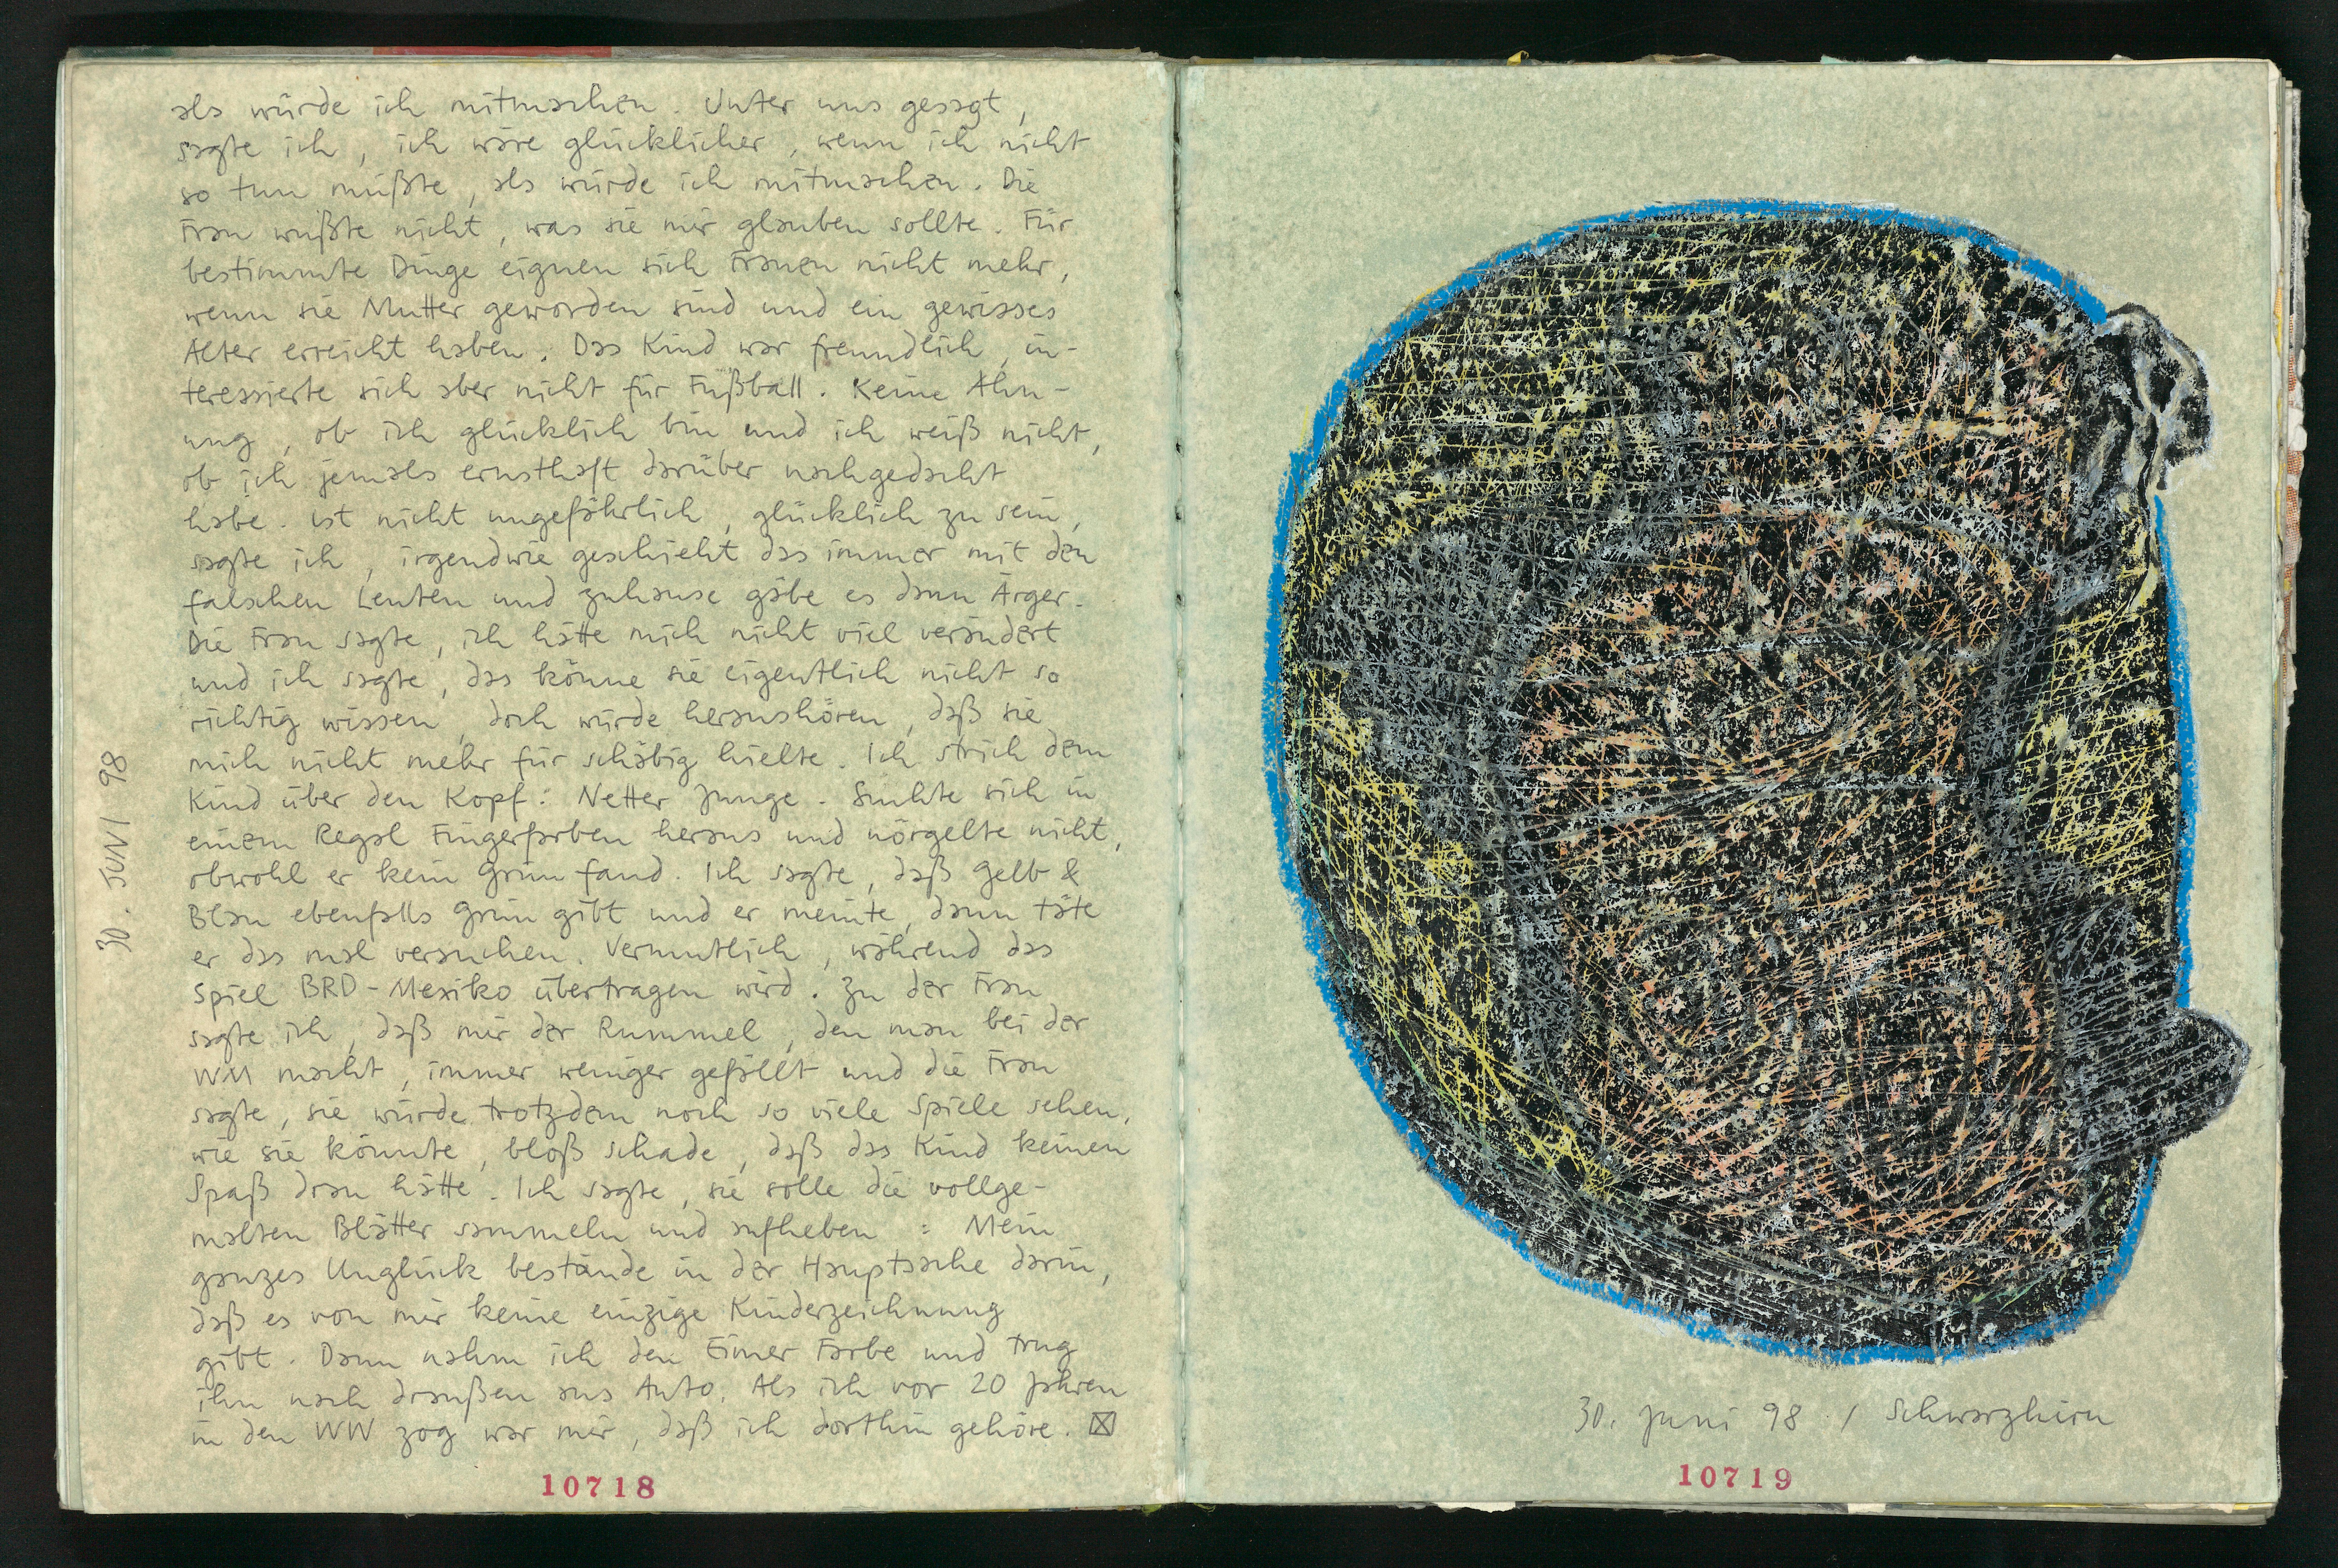 als würde ich mitmachen. Unter uns gesagt,
sagte ich, ich wäre glücklicher, wenn ich nicht
so tun müßte, als würde ich mitmachen. Die
Frau wußte nicht, was sie mir glauben sollte. Für
bestimmte Dinge eignen sich Frauen nicht mehr,
wenn sie Mutter geworden sind und ein gewisses
Alter erreicht haben. Das Kind war freundlich, in-
teressierte sich aber nicht für Fußball. Keine Ahn-
ung, ob ich glücklich bin und ich weiß nicht,
ob ich jemals ernsthaft darüber nachgedacht
habe. ist nicht ungefährlich, glücklich zu sein,
sagte ich, irgendwie geschieht das immer mit den
falschen Leuten und zuhause gäbe es dann Ärger.
Die Frau sagte, ich hätte mich nicht viel verändert
und ich sagte, das könne sie eigentlich nicht so
richtig wissen, doch würde heraushören, daß sie
mich nicht mehr für schäbig hielte. Ich strich dem
Kind über den Kopf: Netter Junge. Suchte sich in
einem Regal Fingerfarben heraus und nörgelte nicht,
obwohl er kein Grün fand. Ich sagte, daß Gelb &
Blau ebenfalls Grün gibt und er meinte, dann täte
er das mal versuchen. Vermutlich, während das
Spiel BRD-Mexiko übertragen wird. Zu der Frau
sagte ich, daß mir der Rummel, den man bei der
WM macht, immer weniger gefällt und die Frau
sagte, sie würde trotzdem noch so viele Spiele sehen,
wie sie könnte, bloß schade, daß das Kind keinen
Spaß dran hätte. Ich sagte, sie solle die vollge-
malten Blätter sammeln und aufheben: Mein
ganzes Unglück bestände in der Hauptsache darin,
daß es von mir keine einzige Kinderzeichnung
gibt. Dann nahm ich den Eimer Farbe und trug
ihn nach draußen ans Auto. Als ich vor 20 Jahren
in den WW zog war mir, daß ich dorthin gehöre.
30. JUNI 98
10718
30. Juni 98 / Schwarzhirn
10719